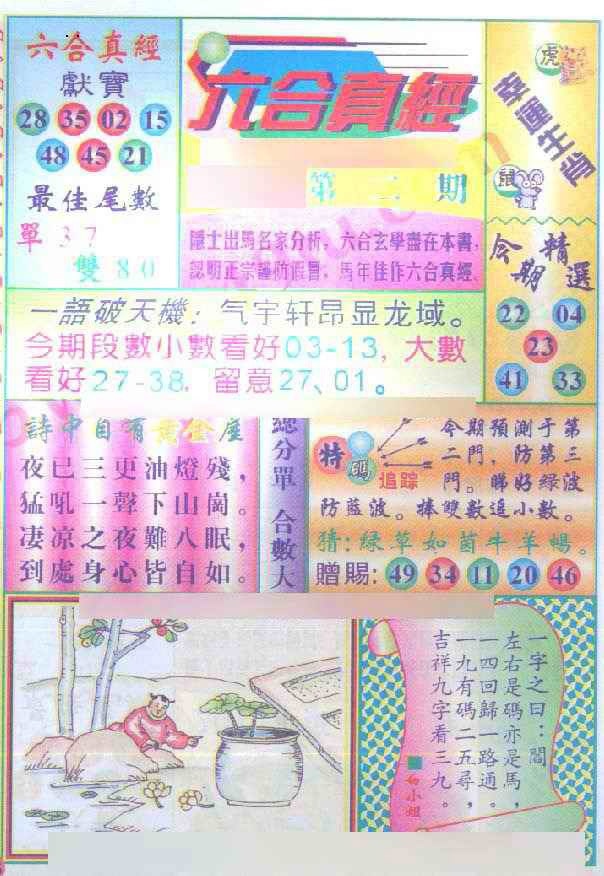 六合真經
獻寶
28 35 02 15
48 45 21
最佳尾數
單 3 7
雙 8 0
六合真經
第二期
隱士出馬名家分析，六合玄學盡在本書，
認明正宗謹防假冒，馬年佳作六合真經。
虎
幸運生肖
鼠
今期精選
22 04
23
41 33
一語破天機：气宇轩昂显龙域。
今期段數小數看好03-13，大數
看好27-38．留意27、01。
詩中自有黃金屋
夜已三更油燈殘，
猛吼一聲下山崗。
凄凉之夜難八眠，
到處身心皆自如。
總分單 合數大
特碼
追踪
今期預測于第
二門，防第三
門。睇好綠波
防藍波。捧雙數追小數。
猜：綠草如茵牛羊暢。
贈賜：49 34 11 20 46
一字之曰：闖
左右是碼亦是馬，
一四回歸一路通。
一九有碼二五尋，
吉祥九字看三九。
小姐